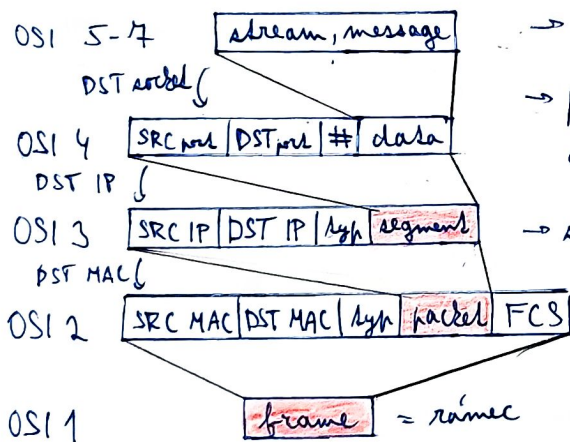 OSI 5-7 stream, message →
DST socket
→
OSI 4 SRC port DST port # data
DST IP
OSI 3 SRC IP DST IP typ segment →
DST MAC
OSI 2 SRC MAC DST MAC typ packet FCS
OSI 1 frame = rámec